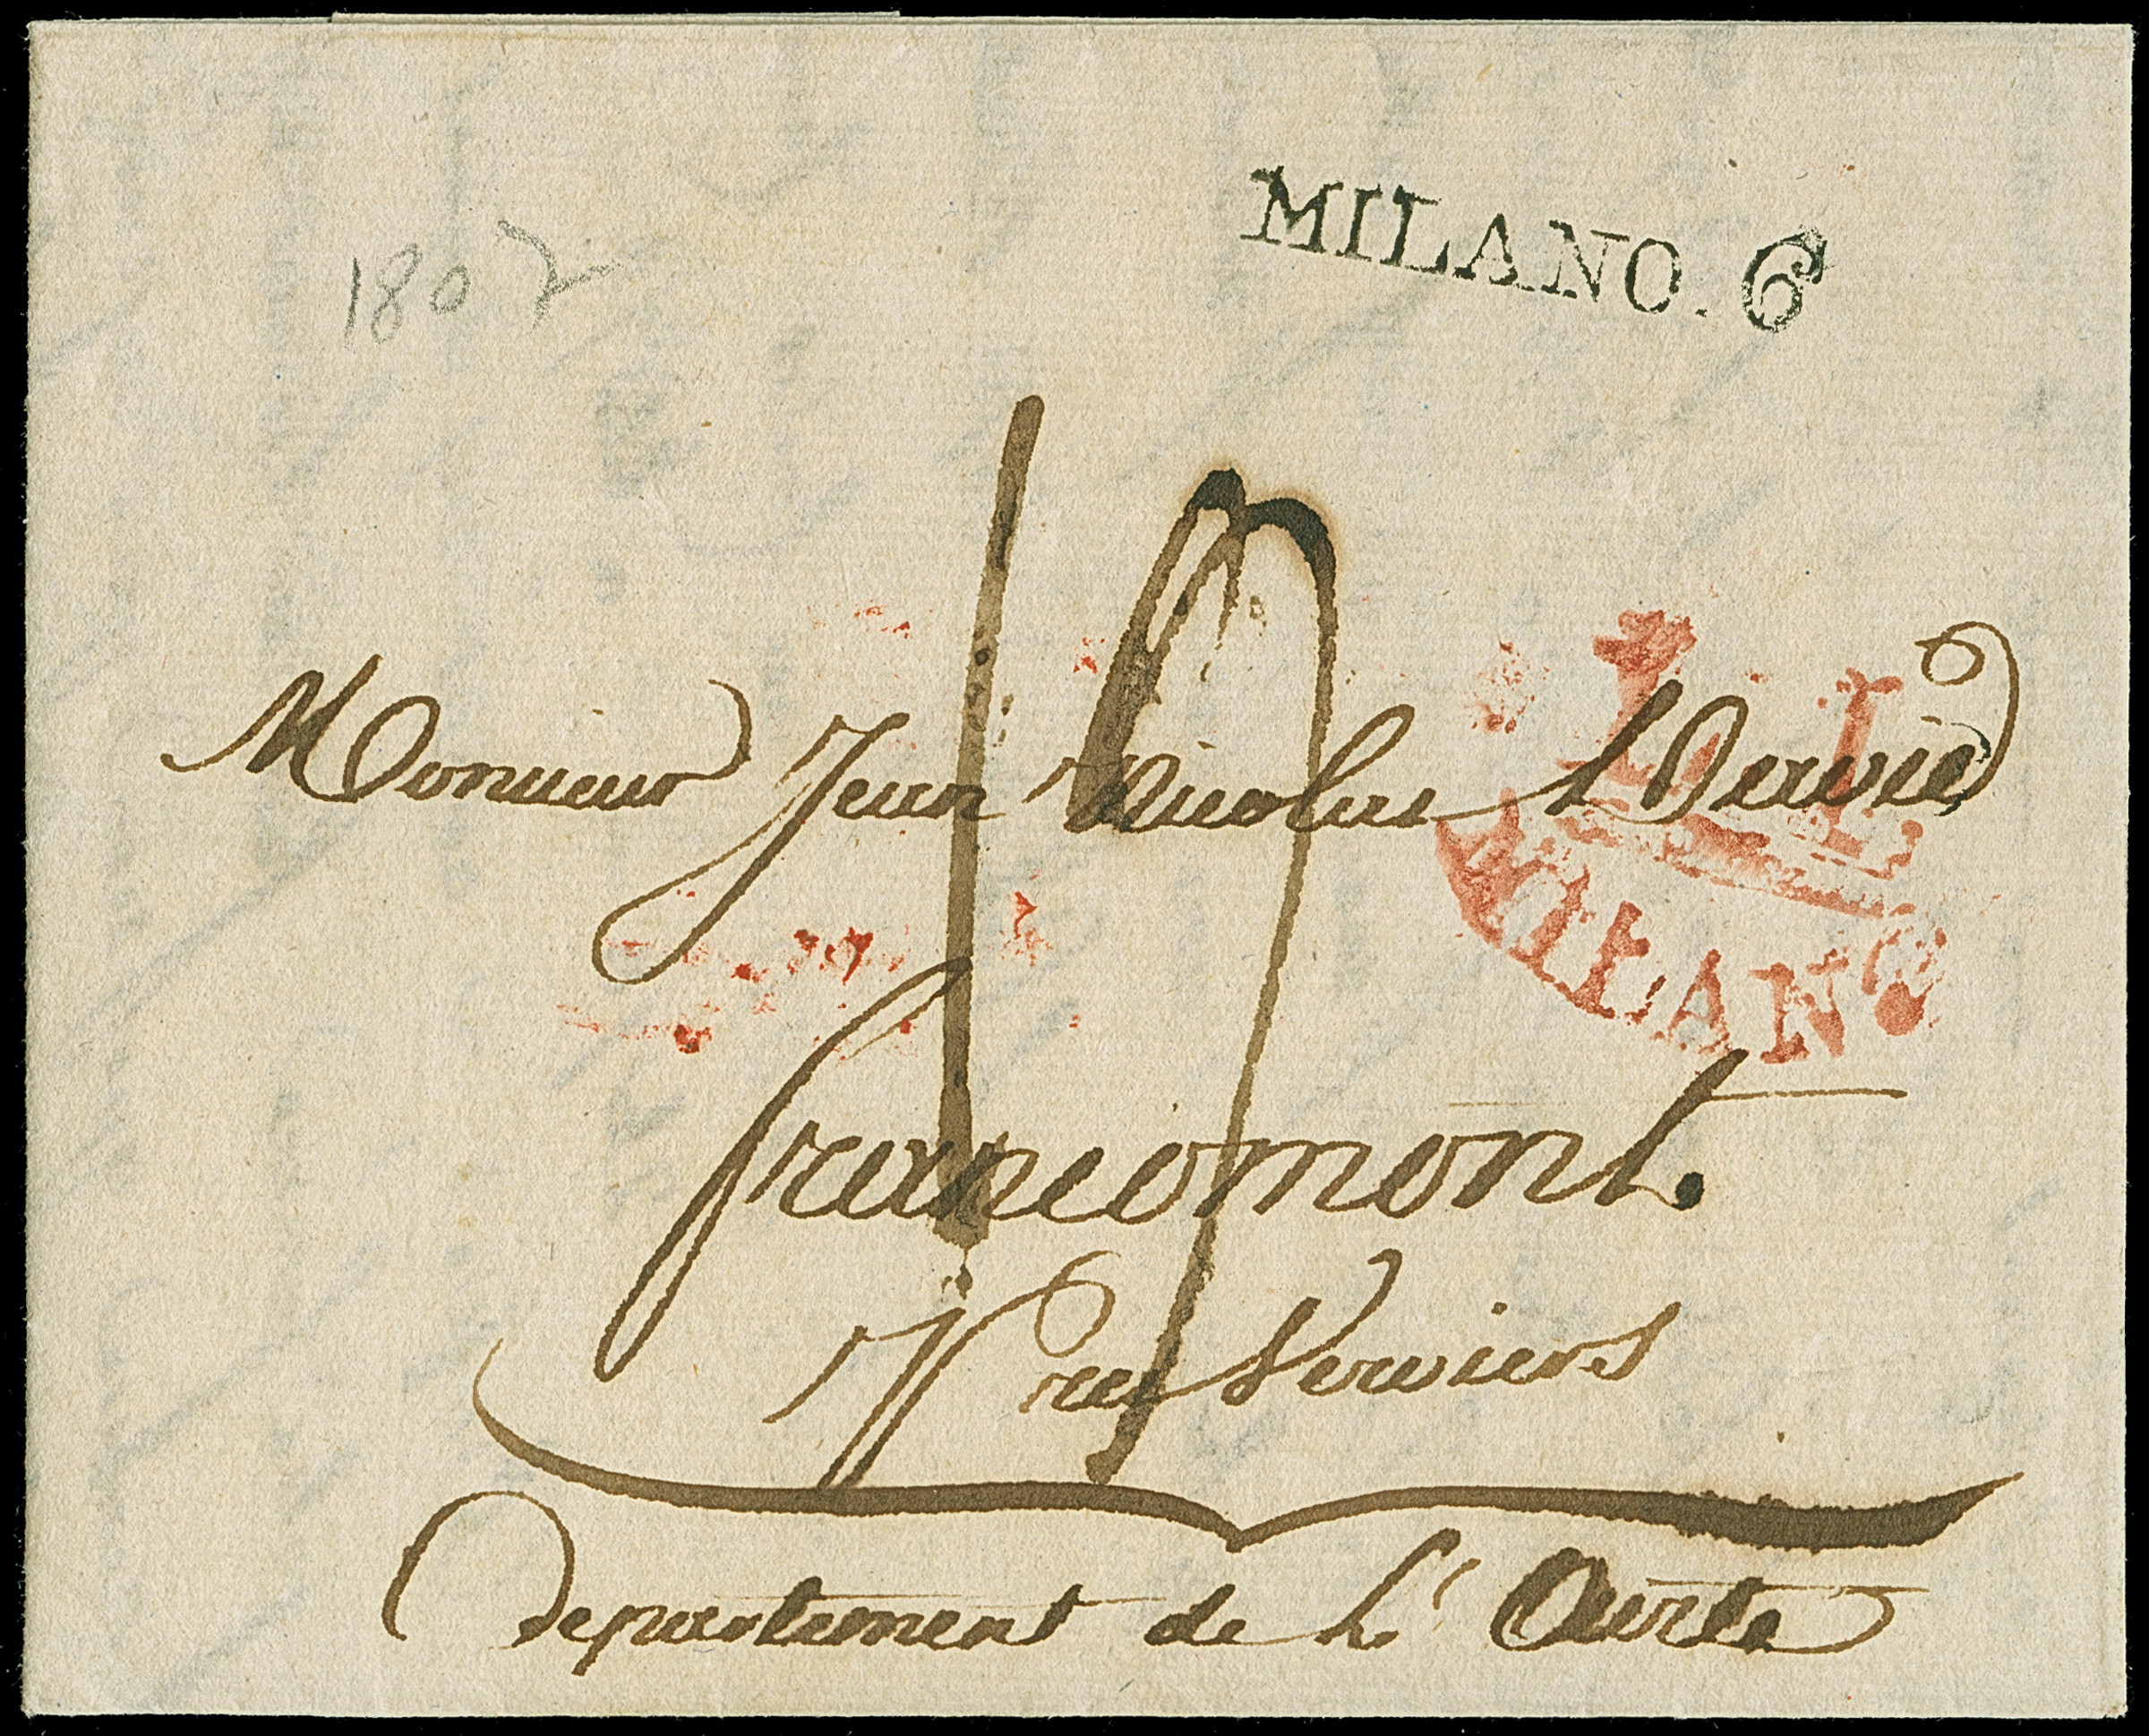 MILANO. 6
1807
19
Monsieur Jean Nicolas David
L. I.
MILANO
francomont.
Pres Verviers
Departement de L' Ourte